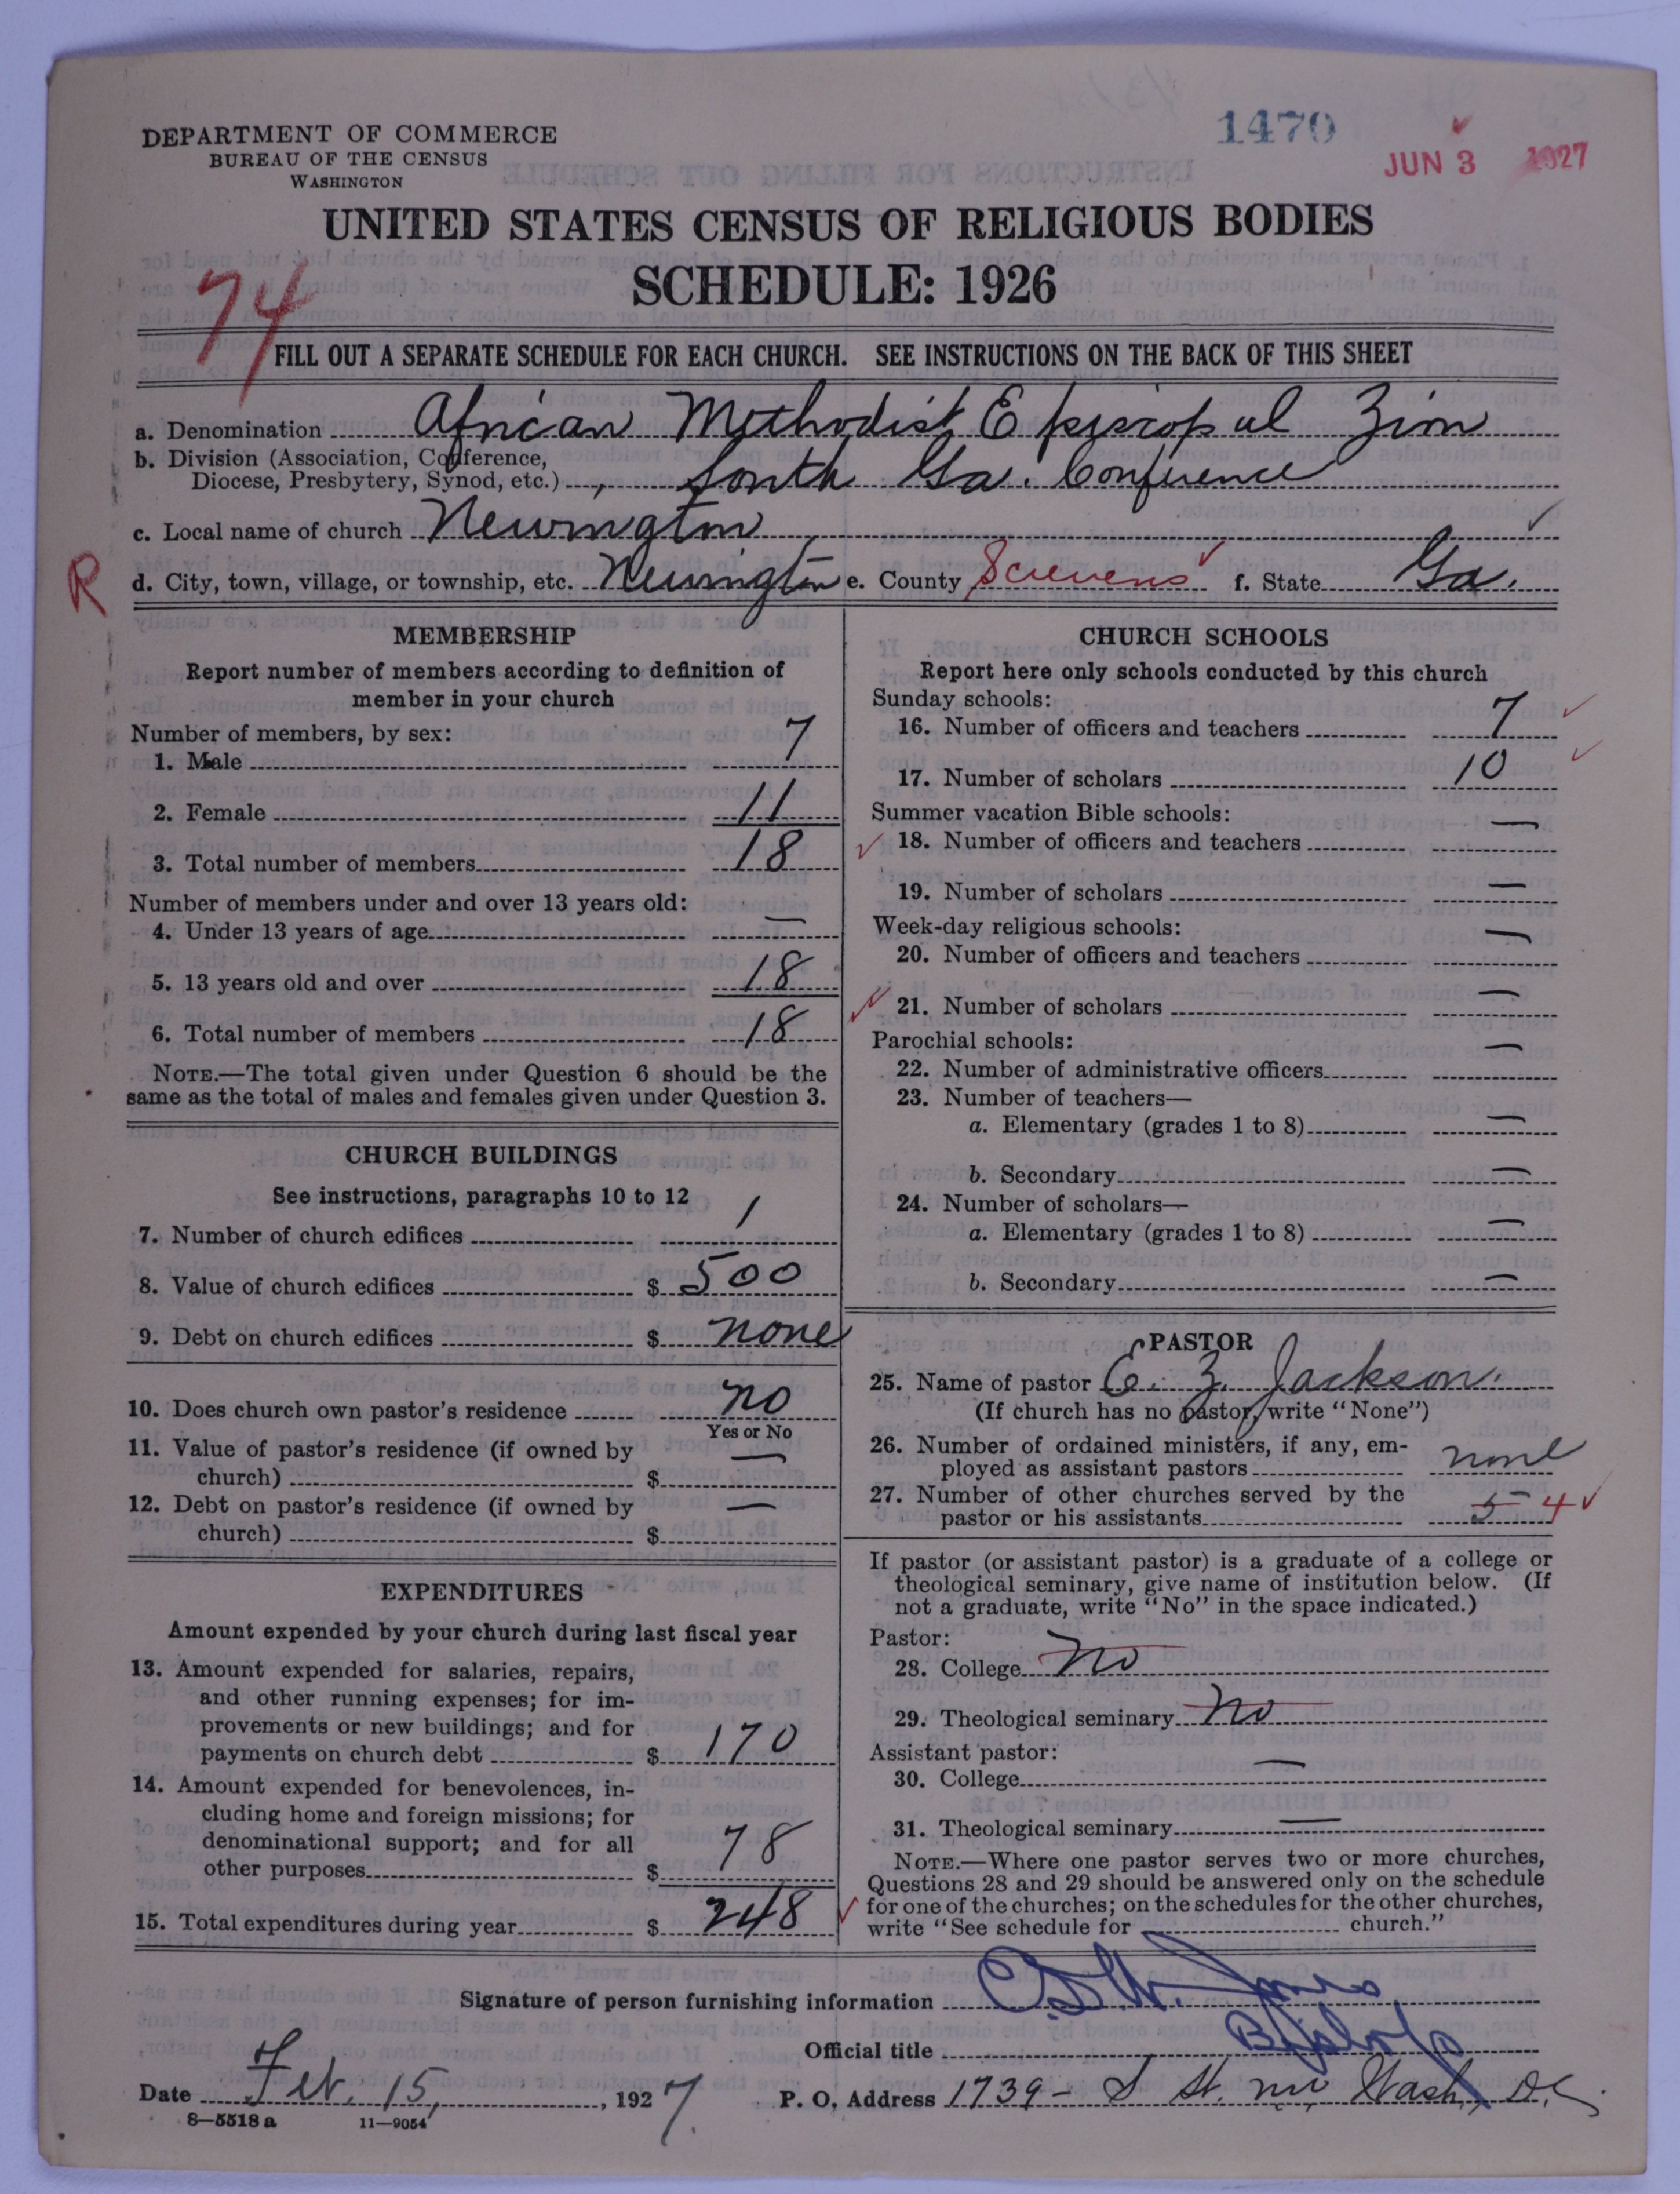 DEPARTMENT OF COMMERCE
BUREAU OF THE CENSUS
WASHINGTON
1470
JUN 3 1927
UNITED STATES CENSUS OF RELIGIOUS BODIES
SCHEDULE: 1926
74
FILL OUT A SEPARATE SCHEDULE FOR EACH CHURCH. SEE INSTRUCTIONS ON THE BACK OF THIS SHEET
a. Denomination African Methodist Episcopal Zion
b. Division (Association, Conference,
Diocese, Presbytery, Synod, etc.) South Ga. Conference
c. Local name of church Newington
R
d. City, town, village, or township, etc. Newington e. County Screvens f. State Ga.
MEMBERSHIP
Report number of members according to definition of
member in your church
Number of members, by sex:
1. Male 7
2. Female 11
3. Total number of members 18
Number of members under and over 13 years old:
4. Under 13 years of age —
5. 13 years old and over 18
6. Total number of members 18
NOTE.—The total given under Question 6 should be the
same as the total of males and females given under Question 3.
CHURCH BUILDINGS
See instructions, paragraphs 10 to 12
7. Number of church edifices 1
8. Value of church edifices $ 500
9. Debt on church edifices $ none
10. Does church own pastor's residence no
Yes or No
11. Value of pastor's residence (if owned by
church) $ —
12. Debt on pastor's residence (if owned by
church) $ —
EXPENDITURES
Amount expended by your church during last fiscal year
13. Amount expended for salaries, repairs,
and other running expenses; for im-
provements or new buildings; and for
payments on church debt $ 170
14. Amount expended for benevolences, in-
cluding home and foreign missions; for
denominational support; and for all
other purposes $ 78
15. Total expenditures during year $ 248
CHURCH SCHOOLS
Report here only schools conducted by this church
Sunday schools:
16. Number of officers and teachers 7
17. Number of scholars 10
Summer vacation Bible schools:
18. Number of officers and teachers —
19. Number of scholars —
Week-day religious schools:
20. Number of officers and teachers —
21. Number of scholars —
Parochial schools:
22. Number of administrative officers —
23. Number of teachers—
a. Elementary (grades 1 to 8) —
b. Secondary —
24. Number of scholars—
a. Elementary (grades 1 to 8) —
b. Secondary —
PASTOR
25. Name of pastor E. Z. Jackson.
(If church has no pastor, write "None")
26. Number of ordained ministers, if any, em-
ployed as assistant pastors none
27. Number of other churches served by the
pastor or his assistants 5 4
If pastor (or assistant pastor) is a graduate of a college or
theological seminary, give name of institution below. (If
not a graduate, write "No" in the space indicated.)
Pastor:
28. College No
29. Theological seminary No
Assistant pastor:
30. College —
31. Theological seminary —
NOTE.—Where one pastor serves two or more churches,
Questions 28 and 29 should be answered only on the schedule
for one of the churches; on the schedules for the other churches,
write "See schedule for church."
Signature of person furnishing information Jones
Official title Bishop
Date Feb. 15, 1927 P. O. Address 1739 - S St. nw Wash, D.C.
8—5518 a 11—9054